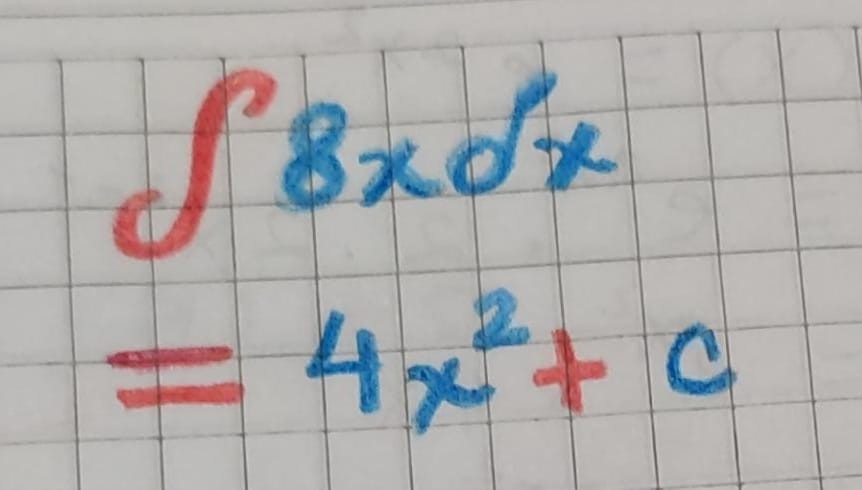 ∫ 8xdx
= 4x² + c